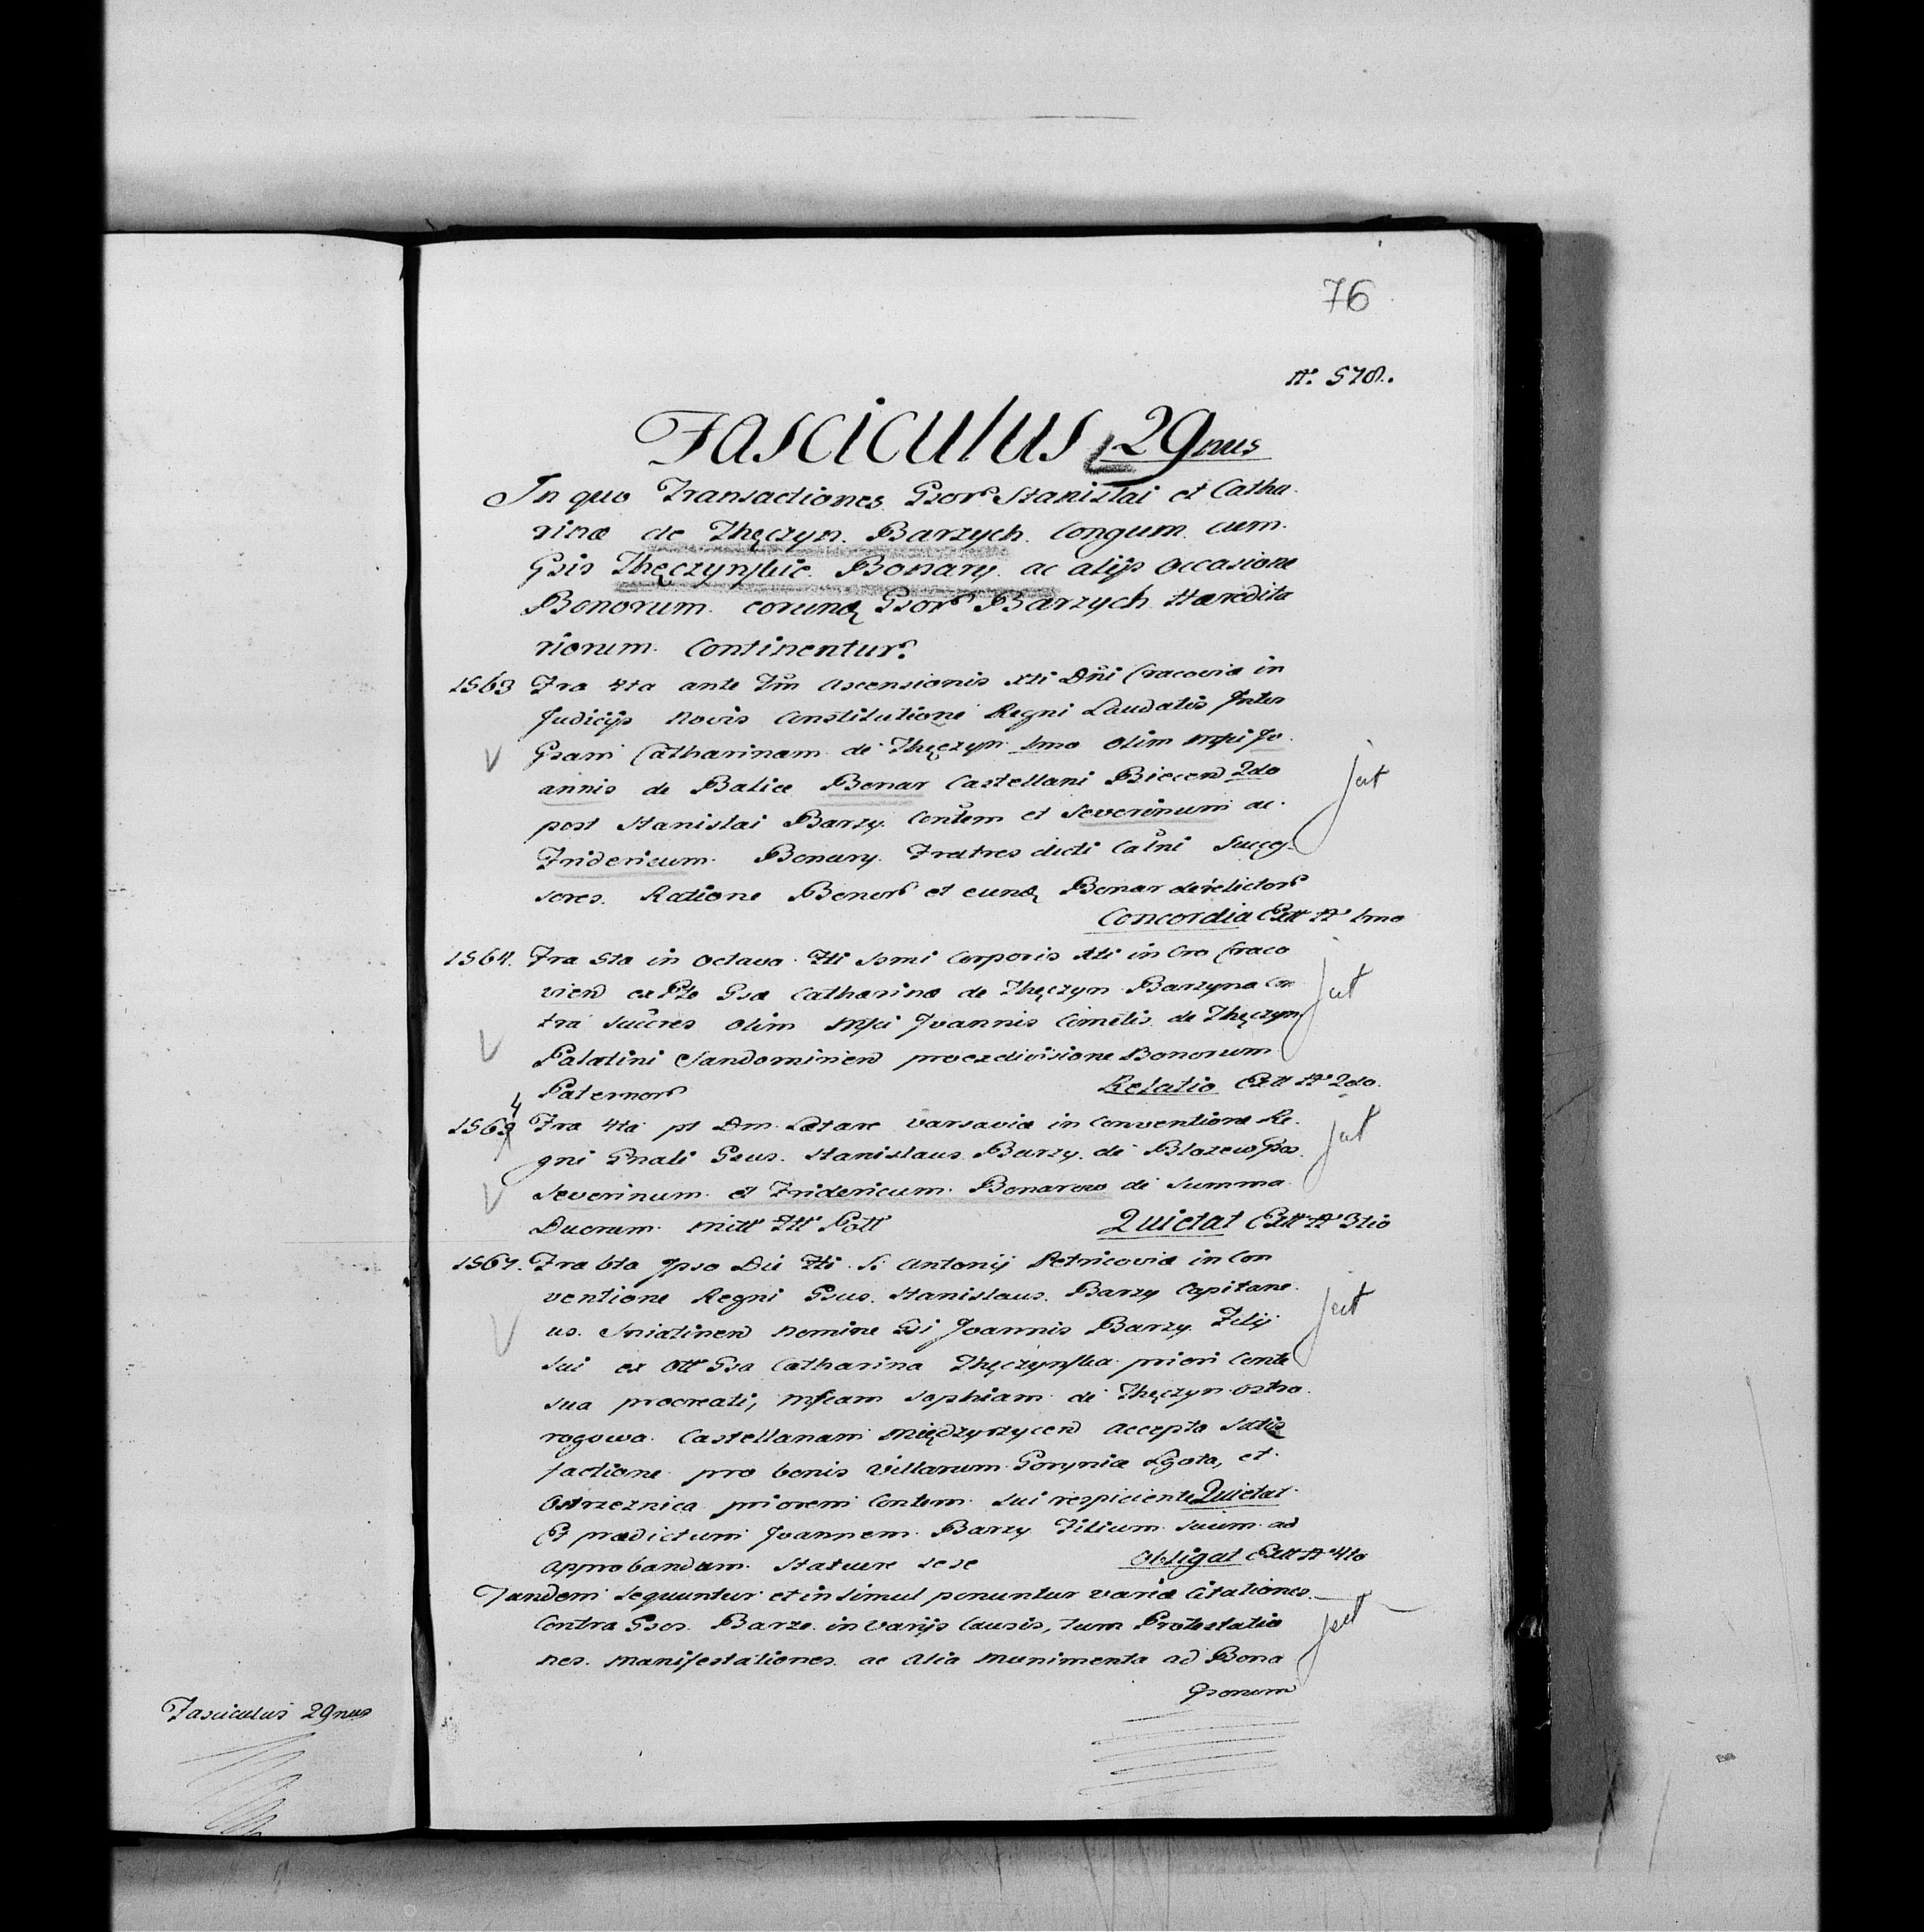 76
N° 578.
Fasciculus 29nus
In quo Transactiones Gsor Stanislai et Catha
rinæ de Thęczyn Barzych Congum cum
Gsis Thęczynskie Bonary ac alijs occasione
Bonorum eorundę Gsor Barzych Hæredita
riorum Continentur.
1563 Fra 4ta ante Fm Ascensionis Xti Dni Cracoviæ in
Judicijs novis Constitutione Regni Laudatis Inter
Gsam Catharinam de Thęczyn 1mo olim Mfci Jo
annis de Balice Bonar Castellani Biecen 2do
post Stanislai Barzy Contem et Severinum ac
Fridericum Bonary Fratres dicti Castni Succes-
sores Ratione Bonor et eundę Bonar derelictor
Concordia Extt N° 1mo
1564. Fra 5ta in Octava Fti Ssmi Corporis Xti in Cro Craco
vien ex Pte Gsæ Catharinæ de Thęczyn Barzyna Con
tra Succres olim Mfci Joannis Comitis de Thęczyn
Palatini Sandomirien pro exdivisione Bonorum
Paternor Relatio Extt N° 2do.
4
1569 Fra 4ta pt Dm Lætare Varsaviæ in Conventione Re-
gni Gnali Gsus Stanislaus Barzy de Blozew Gsos
Severinum et Fridericum Bonarow de Summa
Duorum Mill Ftt Poll Quietat Extt N° 3tio
1567. Fra 6ta Ipso Die Fti S. Antonij Petricoviæ in Con
ventione Regni Gsus Stanislaus Barzy Capitane
us Sniatinen nomine Gsi Joannis Barzy Filij
sui ex Ott Gsa Catharina Thęczynska priori Conte
sua procreati, Mfcam Sophiam de Thęczyn Ostro
rogowa Castellanam Międzyrzycen accepta Satis
factione pro bonis Villarum Goryniæ Lgota, et
Ostrzeznica priorem Contem sui respiciente Quietat
Et prædictum Joannem Barzy Filium suum ad
approbandum Statuere sese Obligat Extt N° 4to
Tandem sequuntur et in simul ponuntur variæ Citationes
Contra Gsos Barze in varijs Causis, tum Protestatio
nes Manifestationes ac alia munimenta ad Bona
Gsorum
jest
jest
jest
jest
jest
Fasciculus 29nus